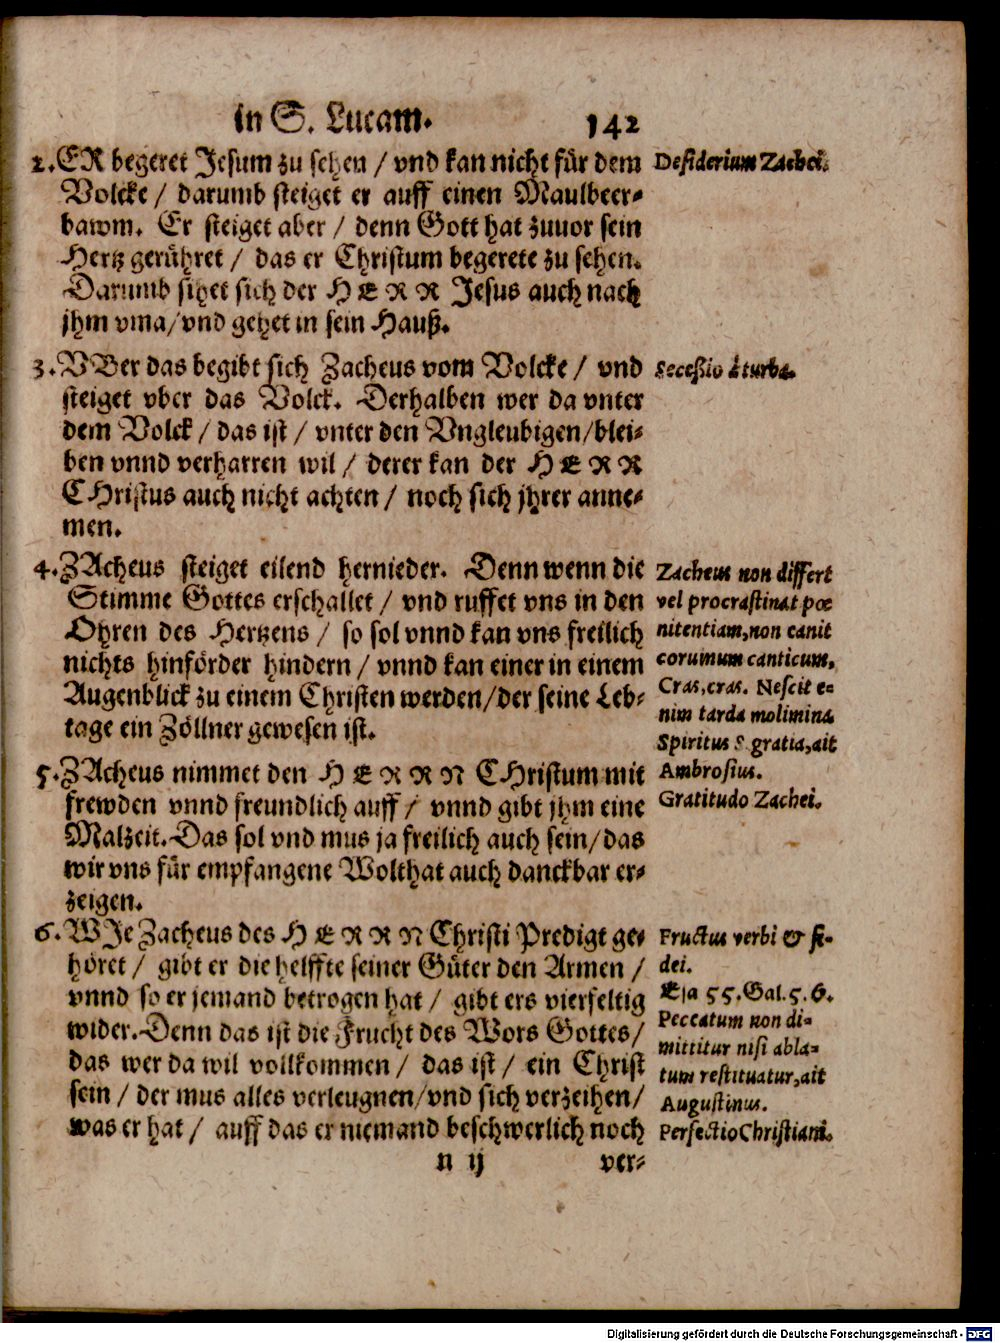 in S. Lucam. 142
2. ER begeret Jesum zu sehen / vnd kan nicht für dem
Volcke / darumb steiget er auff einen Maulbeer-
bawm. Er steiget aber / denn Gott hat zuuor sein
Hertz gerühret / das er Christum begerete zu sehen.
Darumb sihet sich der HERR Jesus auch nach
jhm vma / vnd gehet in sein Hauß.
Desiderium Zachei.
3. VBer das begibt sich Zacheus vom Volcke / vnd
steiget vber das Volck. Derhalben wer da vnter
dem Volck / das ist / vnter den Vngleubigen / blei-
ben vnnd verharren wil / derer kan der HERR
CHristus auch nicht achten / noch sich jhrer anne-
men.
Secessio à turba.
4. ZAcheus steiget eilend hernieder. Denn wenn die
Stimme Gottes erschallet / vnd ruffet vns in den
Ohren des Hertzens / so sol vnnd kan vns freilich
nichts hinförder hindern / vnnd kan einer in einem
Augenblick zu einem Christen werden / der seine Leb-
tage ein Zöllner gewesen ist.
Zacheus non differt
vel procrastinat poe
nitentiam, non canit
coruinum canticum,
Cras, cras. Nescit e-
nim tarda molimina
Spiritus S. gratia, ait
Ambrosius.
5. ZAcheus nimmet den HERRN CHristum mit
frewden vnnd freundlich auff / vnnd gibt jhm eine
Malzeit. Das sol vnd mus ja freilich auch sein / das
wir vns für empfangene Wolthat auch danckbar er-
zeigen.
Gratitudo Zachei.
6. WJe Zacheus des HERRN Christi Predigt ge-
höret / gibt er die helffte seiner Güter den Armen /
vnnd so er jemand betrogen hat / gibt ers vierfeltig
wider. Denn das ist die Frucht des Wors Gottes /
das wer da wil vollkommen / das ist / ein Christ
sein / der mus alles verleugnen / vnd sich verzeihen /
was er hat / auff das er niemand beschwerlich noch
Fructus verbi & fi-
dei.
Esa 55. Gal. 5. 6.
Peccatum non di-
mittitur nisi abla-
tum restituatur, ait
Augustinus.
Perfectio Christiani.
n ij ver-
Digitalisierung gefördert durch die Deutsche Forschungsgemeinschaft - DFG